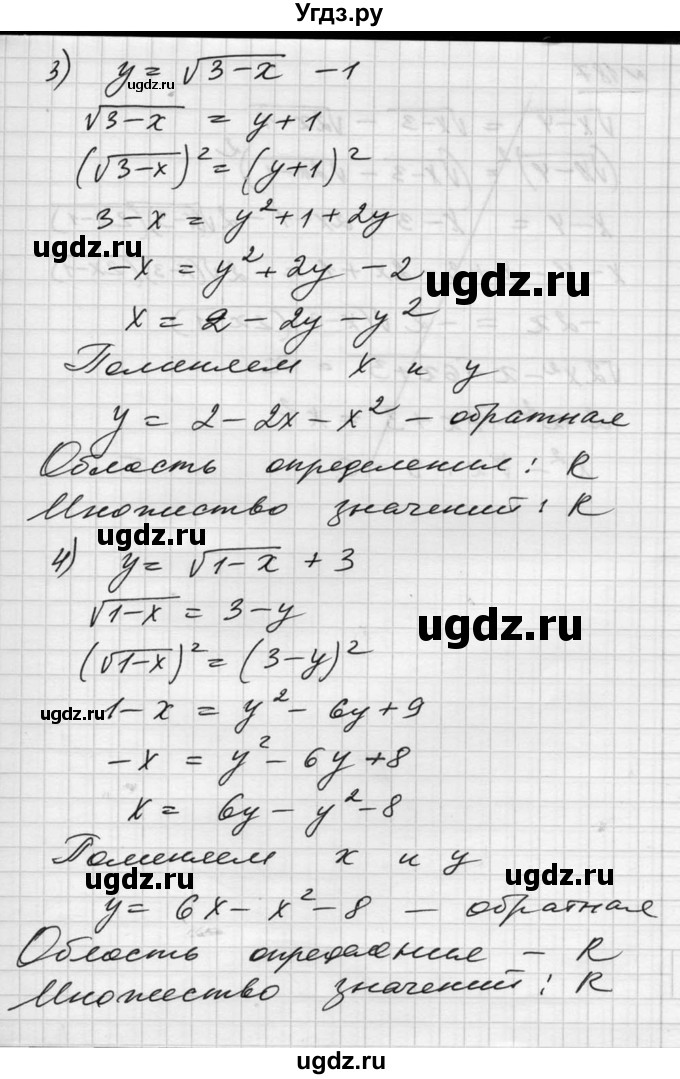 Угдз.ру
3) y = √(3-x) - 1
√(3-x) = y+1
(√(3-x))² = (y+1)²
3-x = y²+1+2y
-x = y²+2y-2
ugdz.ru
ugdz.ru
x = 2-2y-y²
Поменяем x и y
y = 2-2x-x² - обратная
Область определения: R
Множество значений: R
ugdz.ru
4) y = √(1-x) + 3
√(1-x) = 3-y
(√(1-x))² = (3-y)²
ugdz.ru
1-x = y²-6y+9
ugdz.ru
-x = y²-6y+8
x = 6y-y²-8
Поменяем x и y
ugdz.ru
ugdz.ru
y = 6x-x²-8 - обратная
Область определения - R
Множество значений: R
ugdz.ru